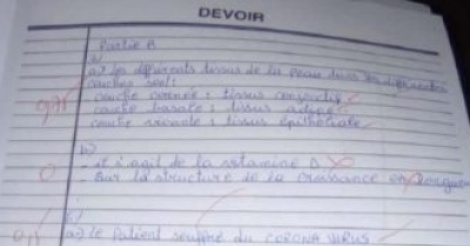 DEVOIR
Partie B
a) Les différents tissus de la peau dans les différentes
couches sont :
- couche cornée : tissus conjonctif
- couche basale : tissus adipeux
couche vivante : tissus épithéliale
0,75
b)
- il s'agit de la vitamine D
- Sur la structure de la croissance en longueur
0
c)
a) le Patient souffre du CORONA VIRUS